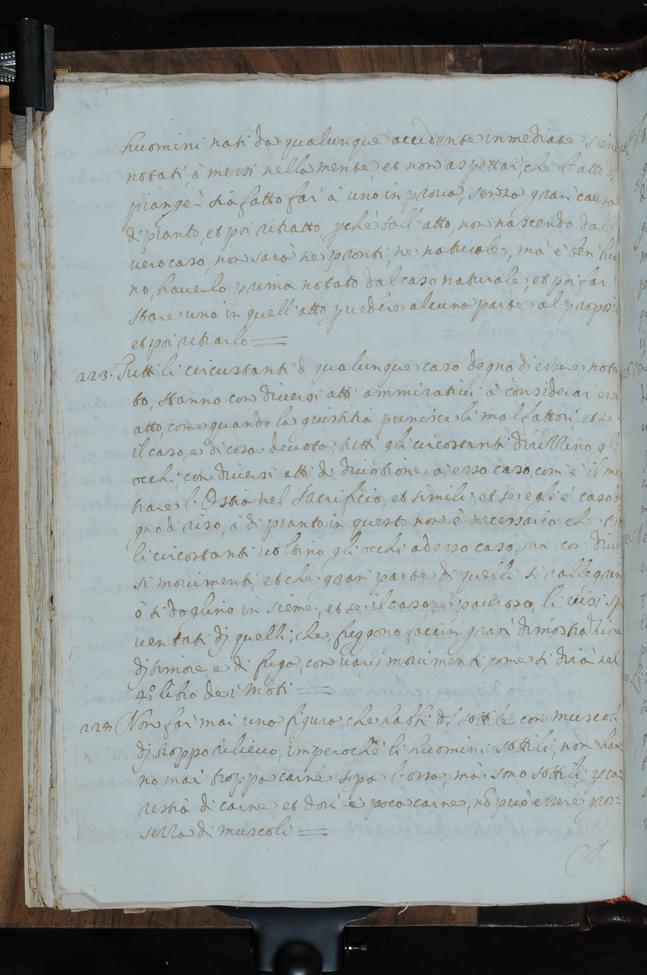 huomini nati da qualunque accidente inmediate sien
notati ò messi nella mente, et non aspettar, che l'atto di
pianger sia fatto far à uno in prova, senza gran causa
di pianto, et poi ritratto, pche tall'atto, non nascendo dal
vero caso, non sarà ne pronti, ne naturale, mà è ben
no, haverlo prima notato dal caso naturale, et poi far
stare uno in quell'atto p vedere alcuna parte al proposi
et poi ritrarlo =
223. Tutti li circustanti di qualunque caso degno di essere nota
to, stanno con diversi atti ammirativi à considerar esso
atto, come quando la giustitia punisce li malfattori, et se
il caso, è di cosa devota, tutti gli circostanti drizzino gli
occhi, con diversi atti di divotione, à esso caso, com'è il mo
trare l'Ostia nel Sacrificio, et simili, et se egli è caso de
gno di riso, ò di pianto, in questo non è necessario che tut
li circostanti voltino gli occhi ad esso caso, ma con diver
si movimenti, et che gran parte di quelli si rallegran
ò si doglino insieme, et se il caso, è pauroso, li visi spa
ventati di quelli, che fuggono faccin gran dimostratione
di timore, e di fuga, con varij movimenti, come si dirà nel
4º. libro de i Moti =
224 Non far mai una figura che habbi del sottile con muscoli
di troppo rilievo, imperochè li huomini sottili, non han
no mai troppa carne sopa l'ossa, mà sono sottili p ca:
restia di carne, et dov'è poca carne, nõ può essere gros:
sezza di muscoli =